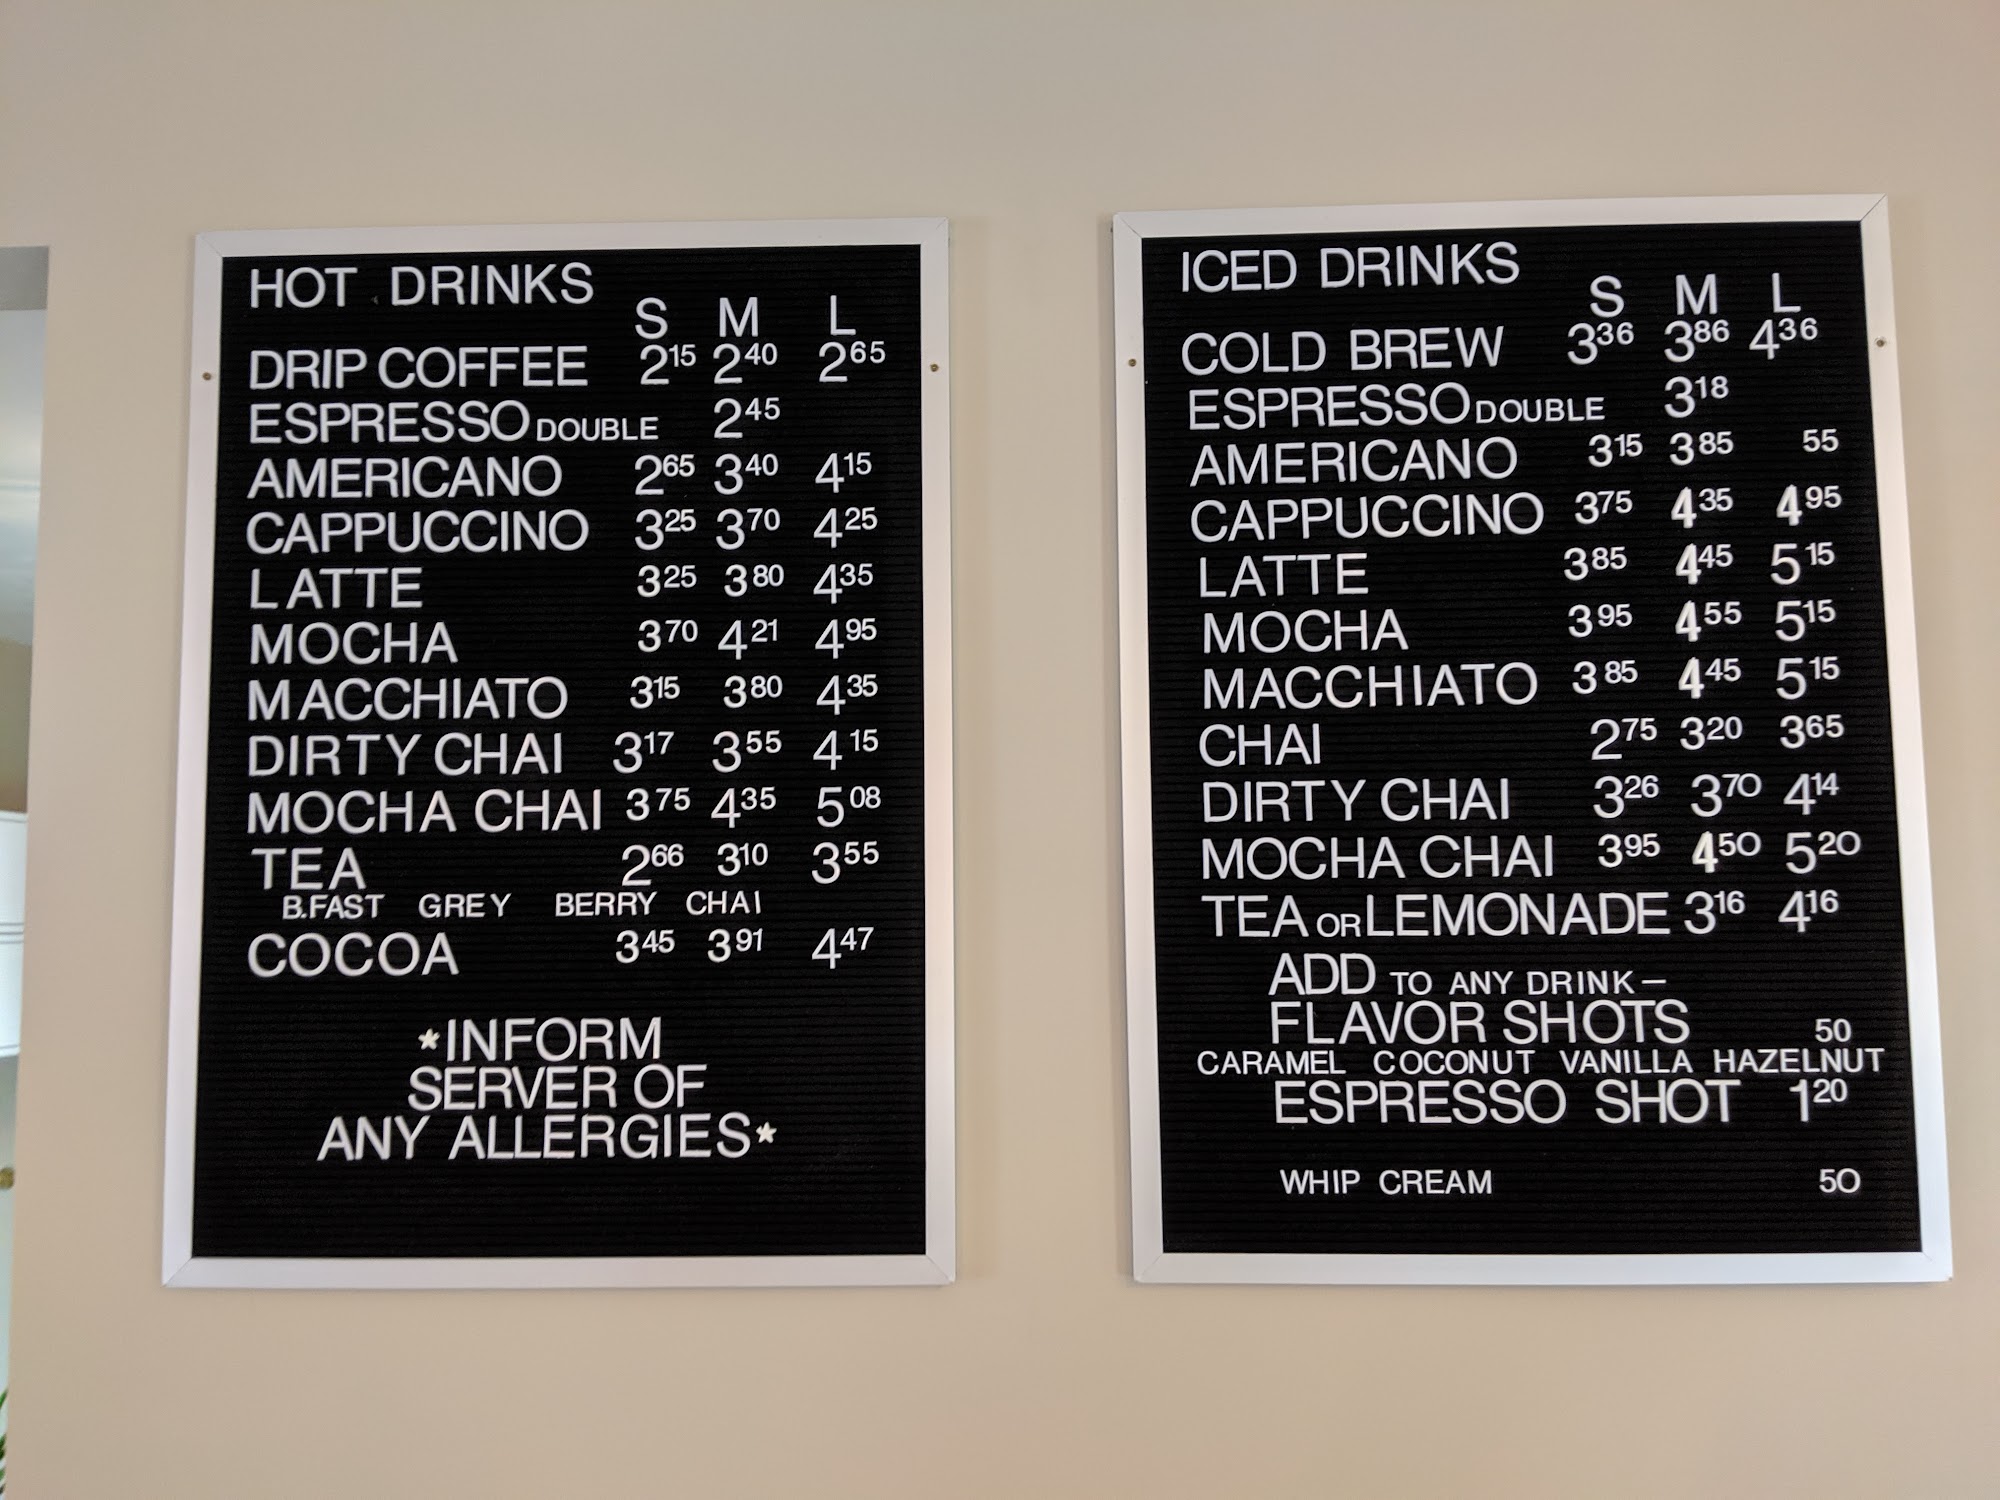 HOT DRINKS
S M L
DRIP COFFEE 2 15 2 40 2 65
ESPRESSO DOUBLE 2 45
AMERICANO 2 65 3 40 4 15
CAPPUCCINO 3 25 3 70 4 25
LATTE 3 25 3 80 4 35
MOCHA 3 70 4 21 4 95
MACCHIATO 3 15 3 80 4 35
DIRTY CHAI 3 17 3 55 4 15
MOCHA CHAI 3 75 4 35 5 08
TEA 2 66 3 10 3 55
B.FAST GREY BERRY CHAI
COCOA 3 45 3 91 4 47
*INFORM
SERVER OF
ANY ALLERGIES*
ICED DRINKS
S M L
COLD BREW 3 36 3 86 4 36
ESPRESSO DOUBLE 3 18
AMERICANO 3 15 3 85 55
CAPPUCCINO 3 75 4 35 4 95
LATTE 3 85 4 45 5 15
MOCHA 3 95 4 55 5 15
MACCHIATO 3 85 4 45 5 15
CHAI 2 75 3 20 3 65
DIRTY CHAI 3 26 3 70 4 14
MOCHA CHAI 3 95 4 50 5 20
TEA OR LEMONADE 3 16 4 16
ADD TO ANY DRINK –
FLAVOR SHOTS 50
CARAMEL COCONUT VANILLA HAZELNUT
ESPRESSO SHOT 1 20
WHIP CREAM 50